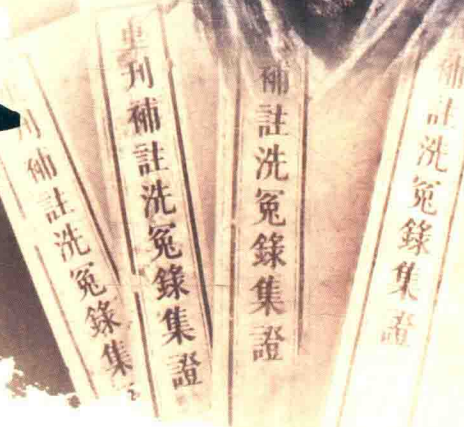 重刊補註洗冤錄集證
補註洗冤錄集證
補註洗冤錄集證
刊補註洗冤錄集